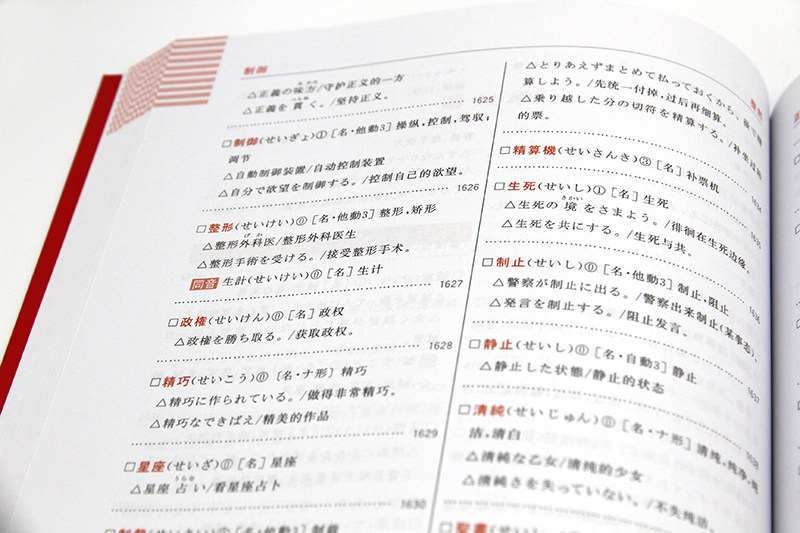 制御
みかた
△正義の味方/守护正义的一方
つらぬ
△正義を貫く。/坚持正义。
1625
□制御(せいぎょ)①[名·他動3]操纵,控制,驾驭;
调节
△自動制御装置/自动控制装置
△自分で欲望を制御する。/控制自己的欲望。
1626
□整形(せいけい)⓪[名·他動3]整形,矫形
げか
△整形外科医/整形外科医生
△整形手術を受ける。/接受整形手术。
同音 生計(せいけい)⓪[名]生计
1627
□政権(せいけん)⓪[名]政权
△政権を勝ち取る。/获取政权。
1628
□精巧(せいこう)⓪[名·ナ形]精巧
△精巧に作られている。/做得非常精巧。
△精巧なできばえ/精美的作品
1629
□星座(せいざ)⓪[名]星座
うらな
△星座占い/看星座占卜
1630
□制裁(せいさい)⓪[名·他動3]制裁
△とりあえずまとめて払っておくから、後で精
算しよう。/先统一付掉,过后再细算。
△乗り越した分の切符を精算する。/补坐过站
的票。
1634
□精算機(せいさんき)③[名]补票机
1635
□生死(せいし)①[名]生死
さかい
△生死の境をさまよう。/徘徊在生死边缘。
△生死を共にする。/生死与共。
1636
□制止(せいし)⓪[名·他動3]制止,阻止
△警察が制止に出る。/警察出来制止(某事态)。
△発言を制止する。/阻止发言。
1637
□静止(せいし)⓪[名·自動3]静止
△静止した状態/静止的状态
1638
□清純(せいじゅん)⓪[名·ナ形]清纯,纯净,纯
洁,清白
△清純な乙女/清纯的少女
△清純さを失っていない。/不失纯洁。
□聖書